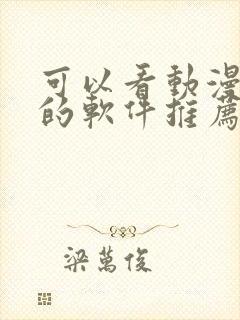 可以看動漫
的軟件推薦
梁萬俊